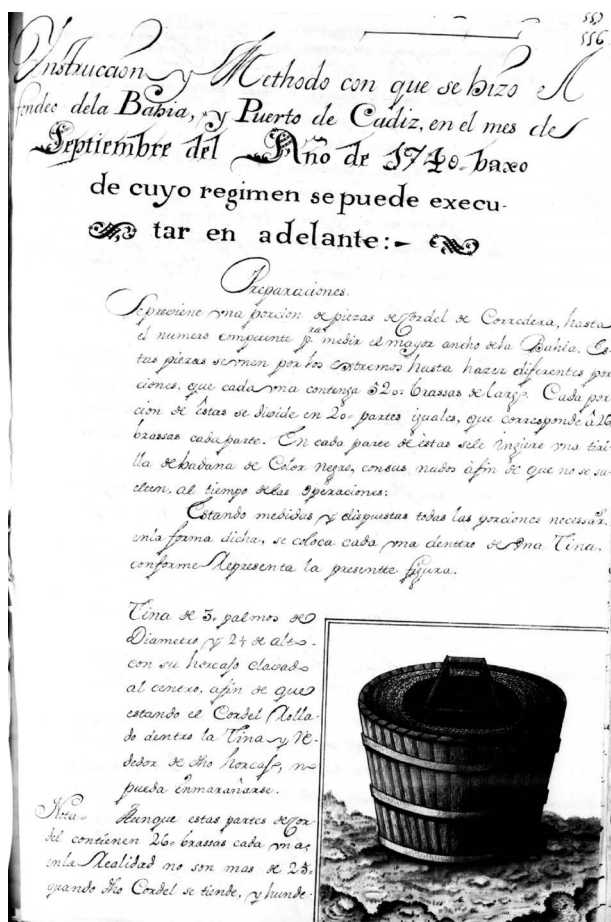 557
556
Instruccion y Methodo con que se hizo el
fondeo dela Bahia, y Puerto de Cadiz, en el mes de
Septiembre del Año de 1740. baxo
de cuyo regimen se puede execu-
tar en adelante:-
Preparaciones.
Se previene vna porcion de piezas de Cordel de Corredera, hasta
el numero competente p.ra medir el mayor ancho de la Bahia. Es-
tas piezas se vnen por los extremos hasta hazer diferentes por
ciones, que cada vna contenga 520. brassas de largo. Cada por
cion de èstas se divide en 20. partes iguales, que corresponde â 26
brassas cada parte. En cada parte de èstas sele ingiere vna tiri-
lla de badana de Color negro, consus nudos àfin de que no se su-
elten, al tiempo delas Operaciones:
Estando medidas y dispuestas todas las porciones necessar.s
enla forma dicha, se coloca cada vna dentro de vna Tina,
conforme Representa la presentte figura.
Tina de 3. palmos de
Diametro y 2½ de alto.
con su horcajo clavado
al centro, afin de que
estando el Cordel Rolla-
do dentro la Tina y Re-
dedor de dho horcajo, no
pueda enmarañarse.
Nota- Aunque estas partes de Cor
del contienen 26. brassas cada vna,
enla Realidad no son mas de 25.
quando dho Cordel se tiende, y hunde-